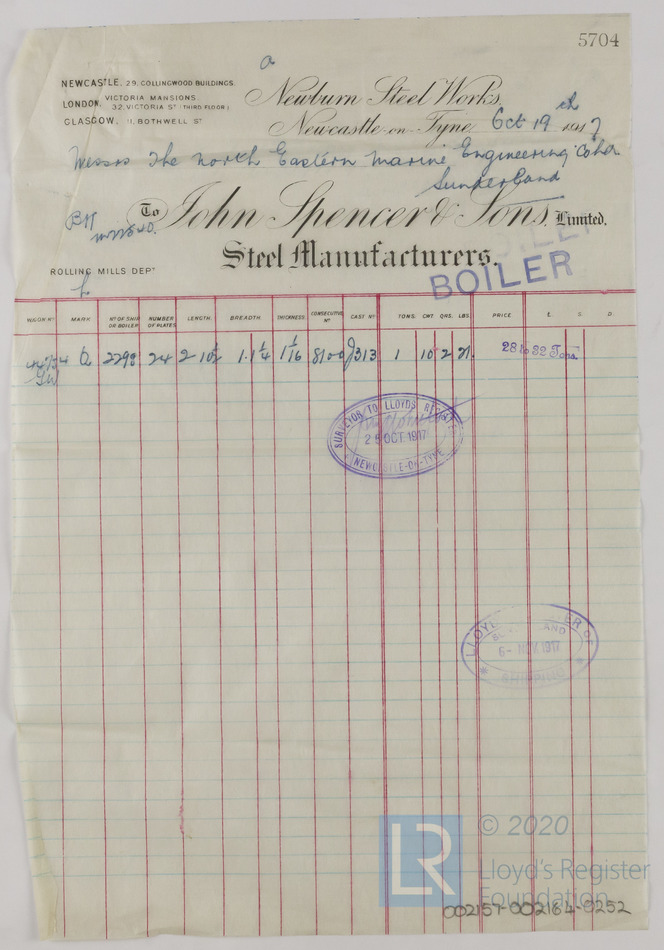 5704
a
NEWCASTLE, 29, COLLINGWOOD BUILDINGS.
LONDON, VICTORIA MANSIONS
32, VICTORIA ST (THIRD FLOOR)
GLASGOW, 11, BOTHWELL ST
Newburn Steel Works,
Newcastle-on-Tyne Oct 19th 1917
Messrs The North Eastern Marine Engineering Co Ltd
Sunderland
To John Spencer & Sons, Limited.
Steel Manufacturers.
ROLLING MILLS DEPT
BOILER
WAGON No MARK No OF SHIP OR BOILER NUMBER OF PLATES LENGTH. BREADTH. THICKNESS. CONSECUTIVE No CAST No TONS. CWT. QRS. LBS. PRICE £ S D.
2298 24 2 10½ 1.1¼ 1 1/16 8100 J313 1 10 2 21. 28 to 32 Tons
SURVEYOR TO LLOYDS REGISTER
26 OCT 1917
NEWCASTLE-ON-TYNE
6- NOV. 1917
SHIPPING
LR
© 2020
Lloyd's Register
Foundation
002157-002164-0252